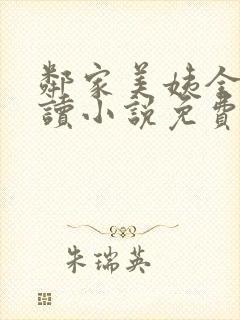 鄰家美姨全
讀小說免費
朱瑞英